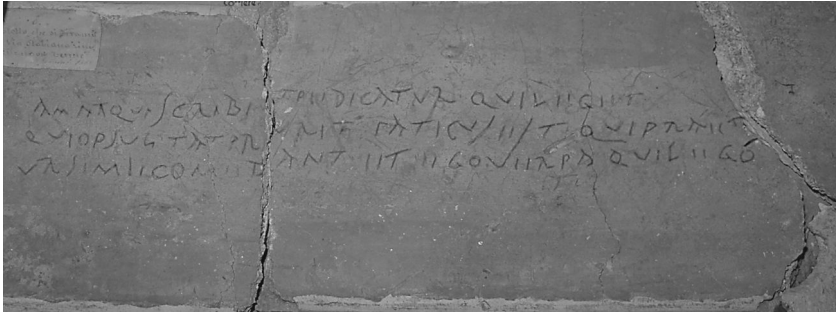 AMAT QVI SCRIBIIT PIIDICATVR QVI LIIGIIT
QVI OPSVLTAT PRVRIT PATICVS IIST QVI PRAIIT
VRSI MII COMIIDANT IIT IIGO VIIRPA QVI LIIGO